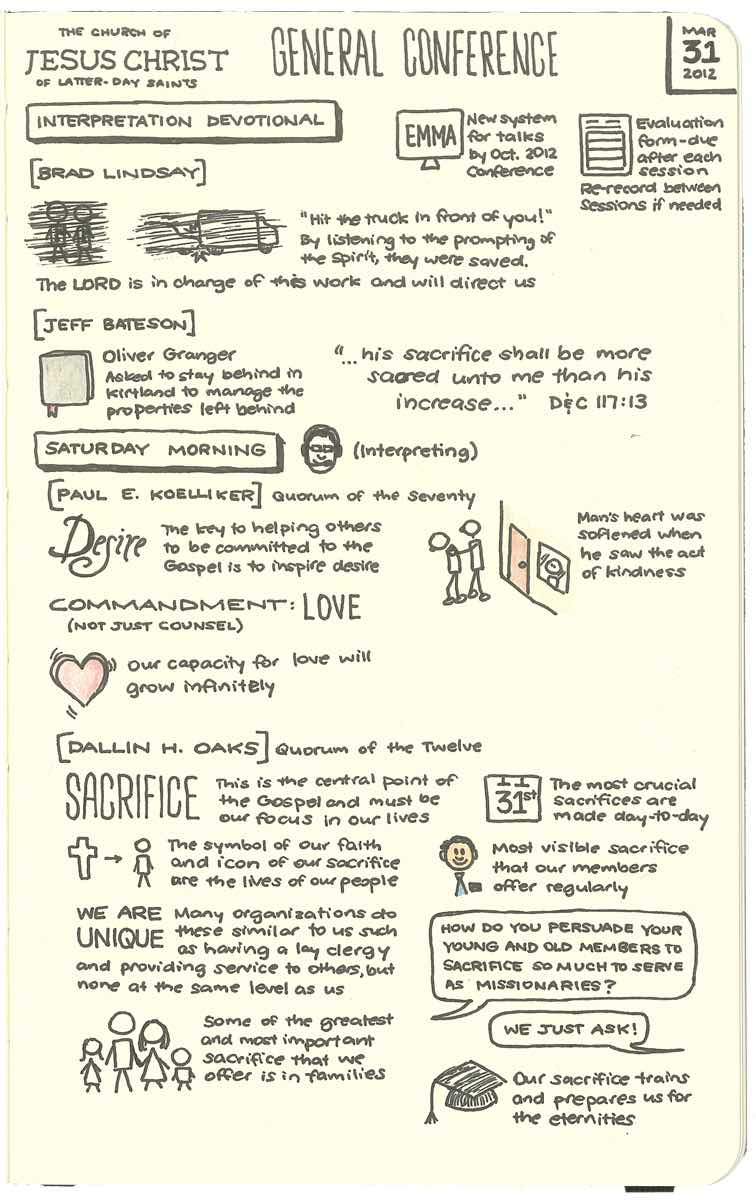 THE CHURCH OF
JESUS CHRIST
OF LATTER-DAY SAINTS
GENERAL CONFERENCE
MAR
31
2012
INTERPRETATION DEVOTIONAL
EMMA
New system
for talks
by Oct. 2012
Conference
Evaluation
form-due
after each
session
Re-record between
Sessions if needed
[BRAD LINDSAY]
"Hit the truck in front of you!"
By listening to the prompting of
the Spirit, they were saved.
The LORD is in charge of this work and will direct us
[JEFF BATESON]
Oliver Granger
Asked to stay behind in
Kirtland to manage the
properties left behind
"...his sacrifice shall be more
sacred unto me than his
increase..." D&C 117:13
SATURDAY MORNING
(Interpreting)
[PAUL E. KOELLIKER] Quorum of the Seventy
Desire
The key to helping others
to be committed to the
Gospel is to inspire desire
Man's heart was
softened when
he saw the act
of kindness
COMMANDMENT: LOVE
(NOT JUST COUNSEL)
Our capacity for love will
grow infinitely
[DALLIN H. OAKS] Quorum of the Twelve
SACRIFICE
This is the central point of
the Gospel and must be
our focus in our lives
31st
The most crucial
sacrifices are
made day-to-day
The symbol of our faith
and icon of our sacrifice
are the lives of our people
Most visible sacrifice
that our members
offer regularly
WE ARE
UNIQUE
Many organizations do
these similar to us such
as having a lay clergy
and providing service to others, but
none at the same level as us
HOW DO YOU PERSUADE YOUR
YOUNG AND OLD MEMBERS TO
SACRIFICE SO MUCH TO SERVE
AS MISSIONARIES?
WE JUST ASK!
Some of the greatest
and most important
sacrifice that we
offer is in families
Our sacrifice trains
and prepares us for
the eternities